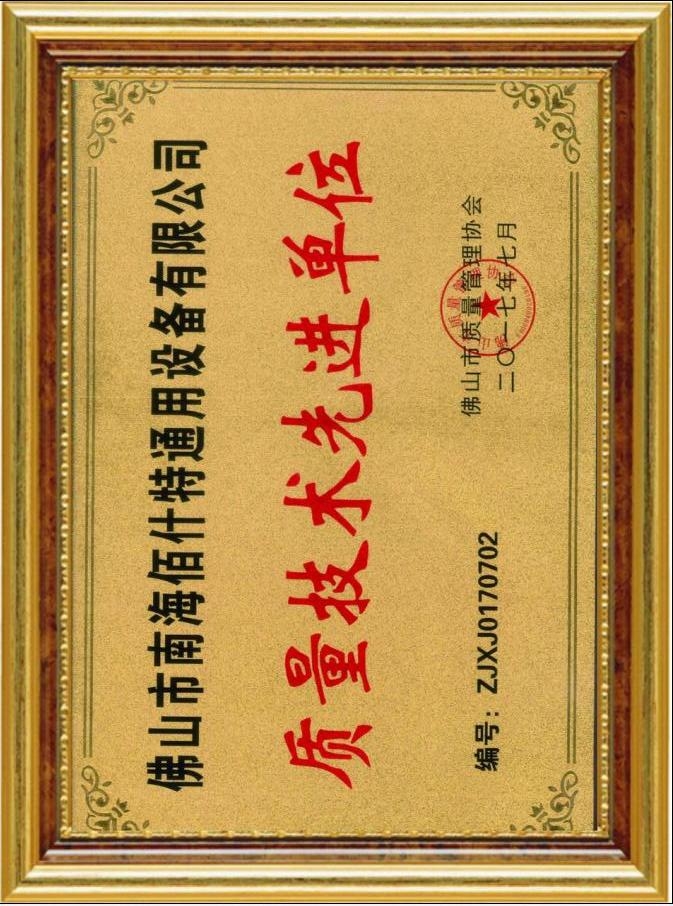 佛山市南海佰什特通用设备有限公司
质量技术先进单位
编号：ZJXJ0170702
佛山市质量管理协会
二〇一七年七月